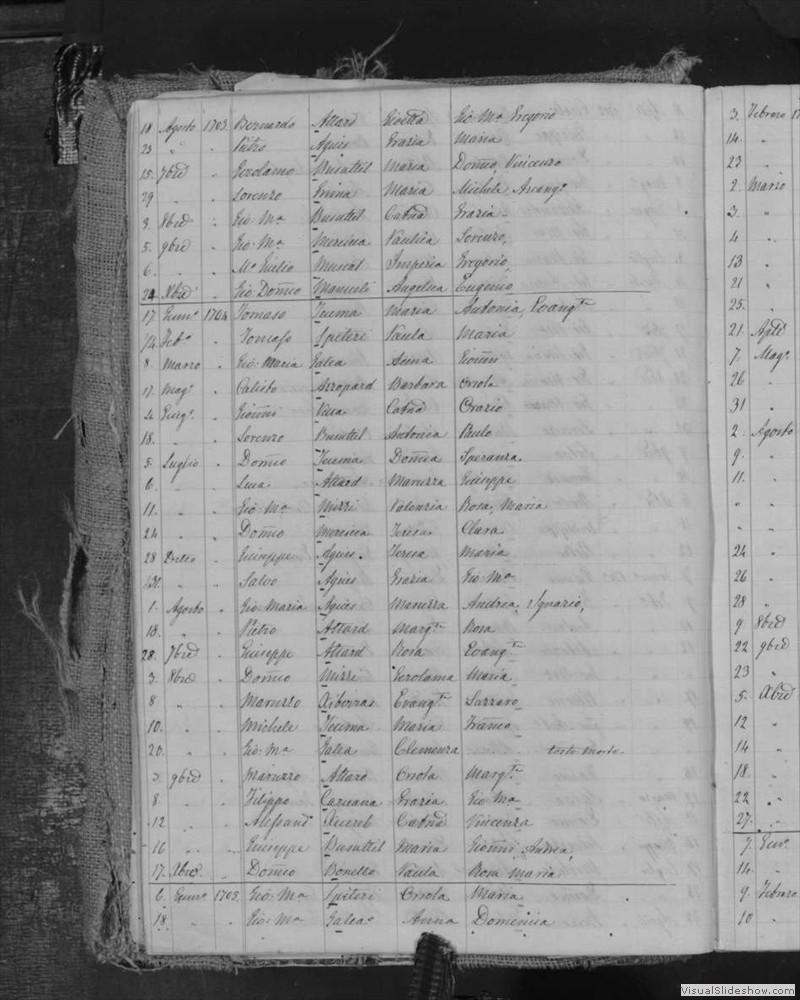 18 Agosto 1703 Bernardo Attard Gioetta Gio: Mª Gregorio
23 " " Pietro Agius Grazia Maria
15 7bre " Gerolamo Busuttil Maria Domco Vincenzo
29 " " Lorenzo Maria Michele Arcangº
3 8bre " Gio: Mª Busuttil Catna Grazia
5 9bre " Gio: Mª Mercieca Paulica Lorenzo,
6 " " Mº Giulio Muscat Imperia Gregorio,
24 Xbre " Gio: Domco Manueli Angelica Eugenio
17 Gennº 1704 Tomaso Tcuma Maria Antonia, Evangta
14 Febº " Tomaso Spiteri Paula Maria
8 Marzo " Gio: Maria Galea Anna Gionni
17 Magº " Calisto Azzopard Barbara Orsola
4 Giugº " Gionni Catna Orazio
18 " " Lorenzo Busuttil Antonia Paulo
5 Luglio " Domco Tcuma Domca Speranza
6 " " Luca Attard Maruzza Giuseppe
11 " " Gio: Mª Mizzi Valenzia Rosa, Maria
24 " " Domco Mercieca Teresa Clara
28 Detto " Giuseppe Agius Teresa Maria
" " Salvo Agius Grazia Gio: Mª
1 Agosto " Gio: Maria Agius Maruzza Andrea, Ignazio,
18 " " Pietro Attard Margta Rosa
28 7bre " Giuseppe Attard Rosa Evangta
3 8bre " Domco Mizzi Gerolama Maria
8 " " Maruzzo Evangta
10 " " Michele Tcuma Maria Franco
20 " " Gio: Mª Galea Clemenza tosto morto
3 9bre " Maruzzo Attard Orsola Margta
8 " " Filippo Caruana Grazia Gio: Mª
12 " " Alessand Xicereb Catna Vincenza
16 " " Giuseppe Busuttil Maria Gionni, Andrea,
17 Xbre " Domco Bonello Paula Rosa Maria
6 Gennº 1705 Gio: Mª Spiteri Orsola Maria
18 " " Gio: Mª Galea Anna Domenica
3 Febraro 17
14 "
23 "
2 Marzo
3 "
4 "
13 "
21 "
25 "
21 Aple
7 Magº
26 "
31 "
2 Agosto
9 "
11 "
" "
" "
24 "
26 "
28 "
9 8bre
22 9bre
23 "
5 Xbre
12 "
14 "
18 "
22 "
27 "
7 Gennº
14 "
9 Febraro
10 "
VisualSlideshow.com